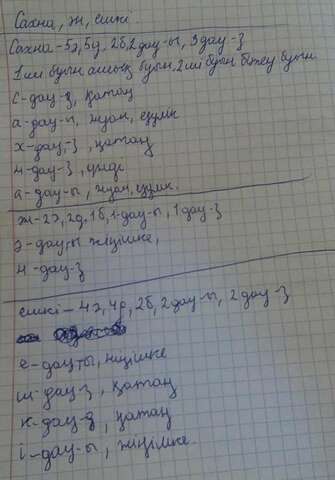 Сахна, ән, ешкі
Сахна-5ә,5д, 2б,2дау-ы, 3дау-з
1ші буын ашық буын,2ші буын бітеу буын
С-дау-з, қатаң
а-дау-ы, жуан, езулік
х-дау-з, қатаң
н-дау-з, үнді
а-дау-ы, жуан, езулік.
ән-2ә, 2д, 1б, 1-дау-ы, 1дау-з
ә-дауты жіңішке,
н-дау-з
ешкі-4ә, 4д, 2б, 2дау-ы, 2дау-з
е-дауты, жіңішке
ш-дау-з, қатаң
к-дау-з, қатаң
і-дау-ы, жіңішке.